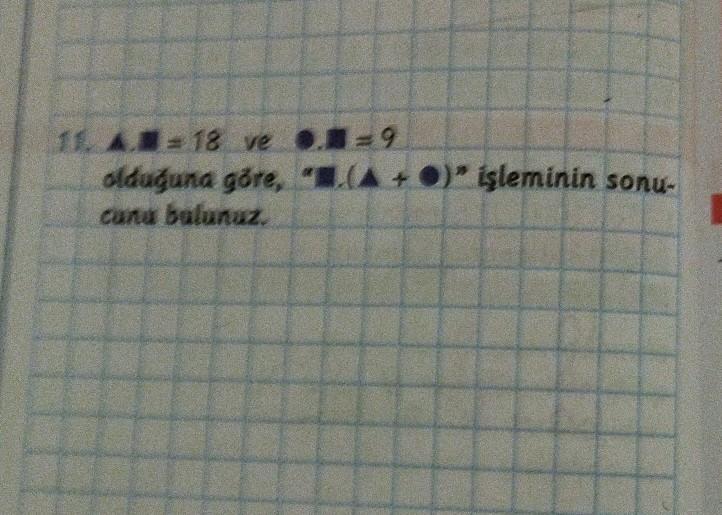 11. ▲.■ = 18 ve ●.■ = 9
olduğuna göre, "■.(▲ + ●)" işleminin sonu-
cunu bulunuz.